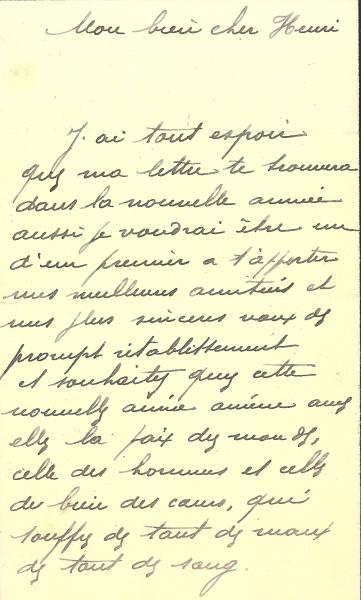 Mon bien cher Henri
J. ai tout espoir
que ma lettre te trouvera
dans la nouvelle année
aussi je voudrai être un
d'eur premier a t'apporter
mes meilleures amitiés et
mes plus sinceres vœux de
prompt rétablissement
et souhaite que cette
nouvelle année amène avec
elle la paix du monde,
celle des hommes et celle
du bien des cœurs, qui
souffre de tant de maux
de tant de sang.